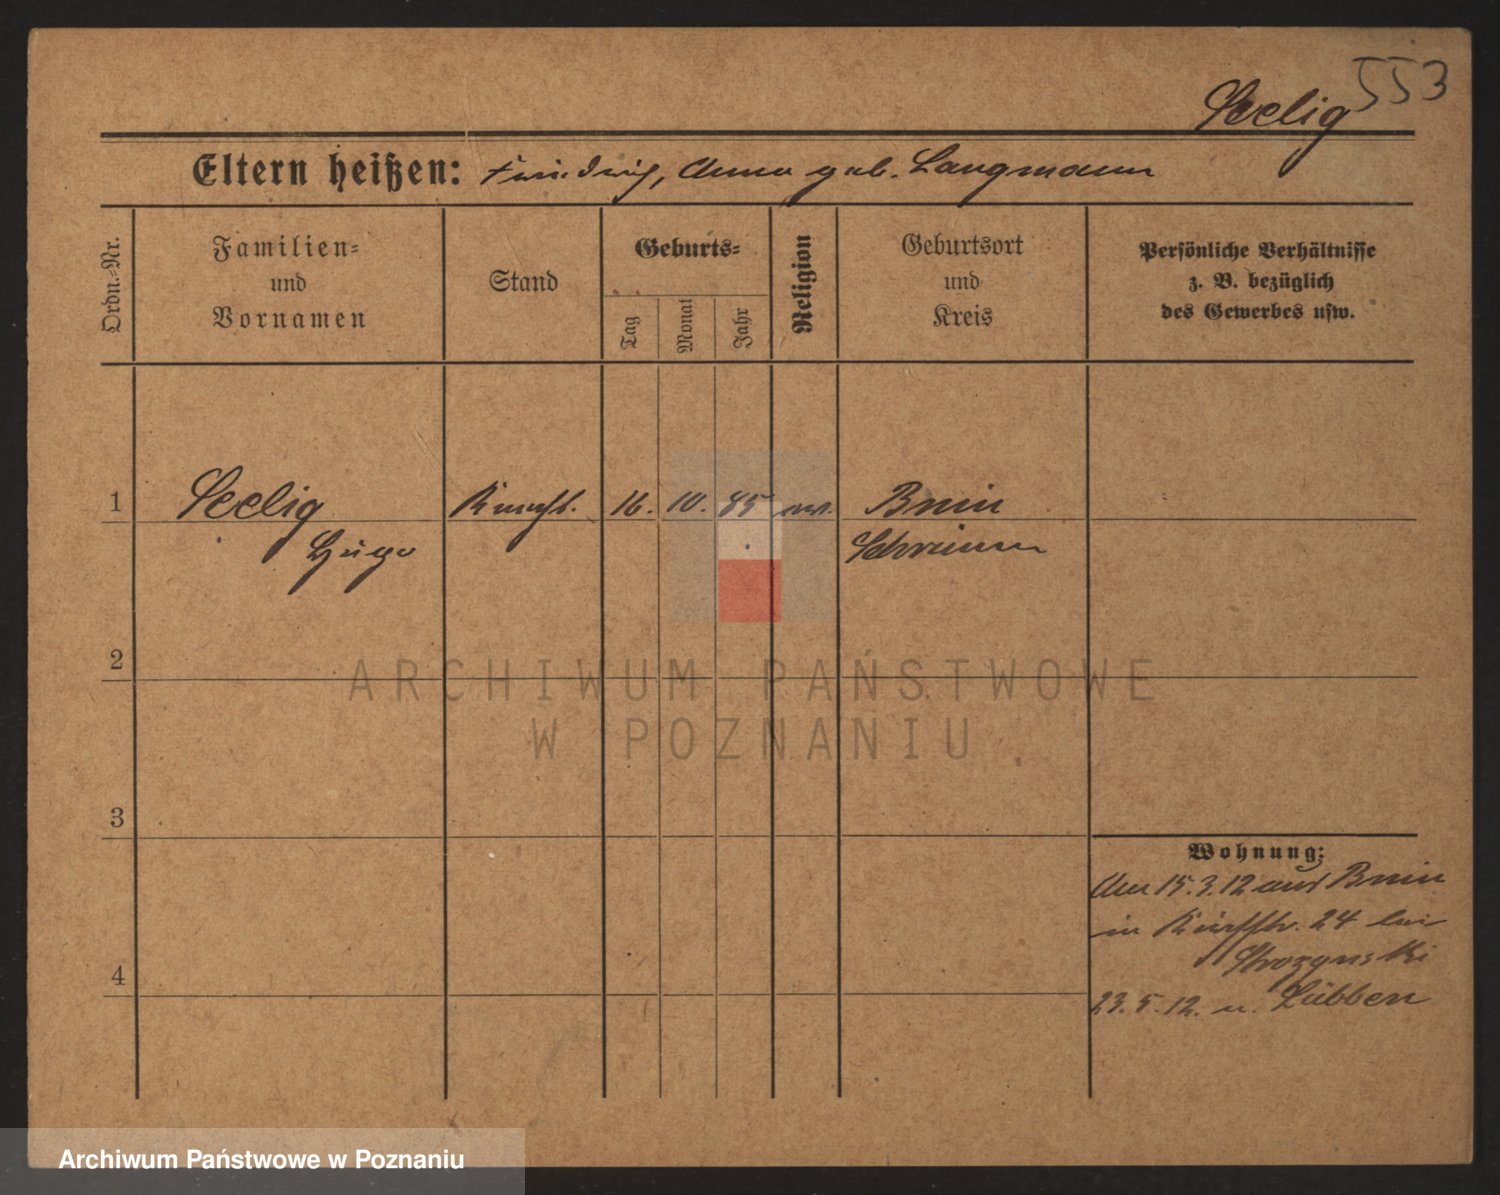 553
Seelig
Eltern heißen: Friedrich, Anna geb. Langmann
Ordn.-Nr.
Familien-
und
Vornamen
Stand
Geburts-
Tag
Monat
Jahr
Religion
Geburtsort
und
Kreis
Persönliche Verhältnisse
z. B. bezüglich
des Gewerbes usw.
1
Seelig
Hugo
16. 10. 85 ev.
Bnin
Schrimm
2
3
4
Wohnung:
Am 15.3.12 aus Bnin
in 24 bei
23.5.12. n. Lübben
ARCHIWUM PAŃSTWOWE
W POZNANIU
Archiwum Państwowe w Poznaniu